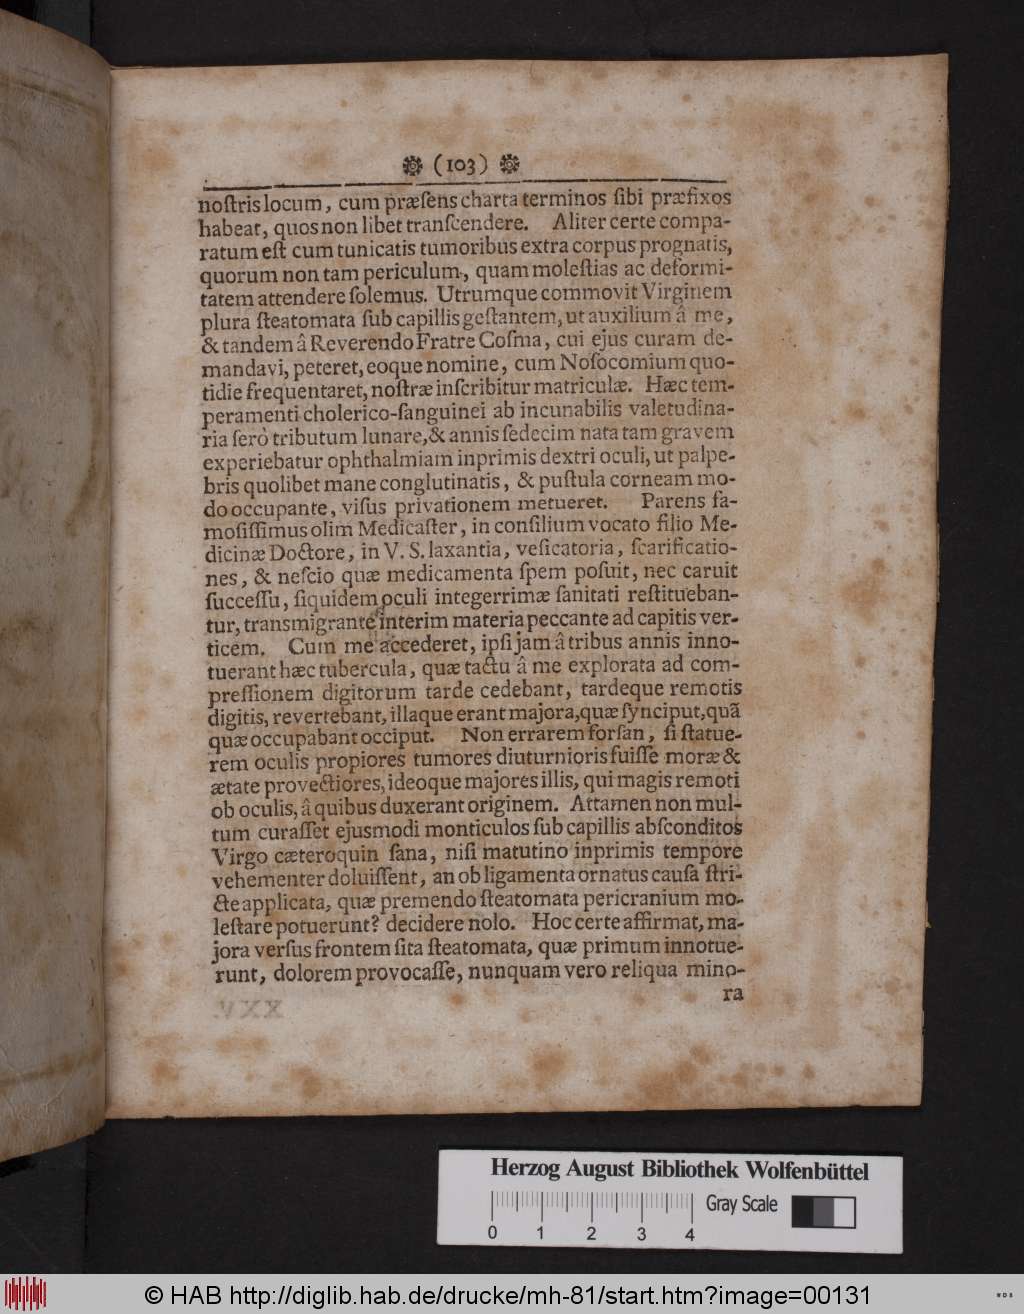 ❁ (103) ❁
noſtris locum, cum præſens charta terminos ſibi præfixos
habeat, quos non libet tranſcendere. Aliter certe compa-
ratum eſt cum tunicatis tumoribus extra corpus prognatis,
quorum non tam periculum, quam moleſtias ac deformi-
tatem attendere ſolemus. Utrumque commovit Virginem
plura ſteatomata ſub capillis geſtantem, ut auxilium â me,
& tandem â Reverendo Fratre Coſma, cui ejus curam de-
mandavi, peteret, eoque nomine, cum Noſocomium quo-
tidie frequentaret, noſtræ inſcribitur matriculæ. Hæc tem-
peramenti cholerico-ſanguinei ab incunabilis valetudina-
ria ſerò tributum lunare, & annis ſedecim nata tam gravem
experiebatur ophthalmiam inprimis dextri oculi, ut palpe-
bris quolibet mane conglutinatis, & puſtula corneam mo-
do occupante, viſus privationem metueret. Parens fa-
moſiſſimus olim Medicaſter, in conſilium vocato filio Me-
dicinæ Doctore, in V. S. laxantia, veſicatoria, ſcarificatio-
nes, & neſcio quæ medicamenta ſpem poſuit, nec caruit
ſucceſſu, ſiquidem oculi integerrimæ ſanitati reſtitueban-
tur, transmigrante interim materia peccante ad capitis ver-
ticem. Cum me accederet, ipſi jam â tribus annis inno-
tuerant hæc tubercula, quæ tactu â me explorata ad com-
preſſionem digitorum tarde cedebant, tardeque remotis
digitis, revertebant, illaque erant majora, quæ ſynciput, quã
quæ occupabant occiput. Non errarem forſan, ſi ſtatue-
rem oculis propiores tumores diuturnioris fuiſſe moræ &
ætate provectiores, ideoque majores illis, qui magis remoti
ob oculis, â quibus duxerant originem. Attamen non mul-
tum curaſſet ejusmodi monticulos ſub capillis abſconditos
Virgo cæteroquin ſana, niſi matutino inprimis tempore
vehementer doluiſſent, an ob ligamenta ornatus cauſa ſtri-
cte applicata, quæ premendo ſteatomata pericranium mo-
leſtare potuerunt? decidere nolo. Hoc certe affirmat, ma-
jora verſus frontem ſita ſteatomata, quæ primum innotue-
runt, dolorem provocaſſe, nunquam vero reliqua mino-
ra
Herzog August Bibliothek Wolfenbüttel
Gray Scale
0 1 2 3 4
© HAB http://diglib.hab.de/drucke/mh-81/start.htm?image=00131